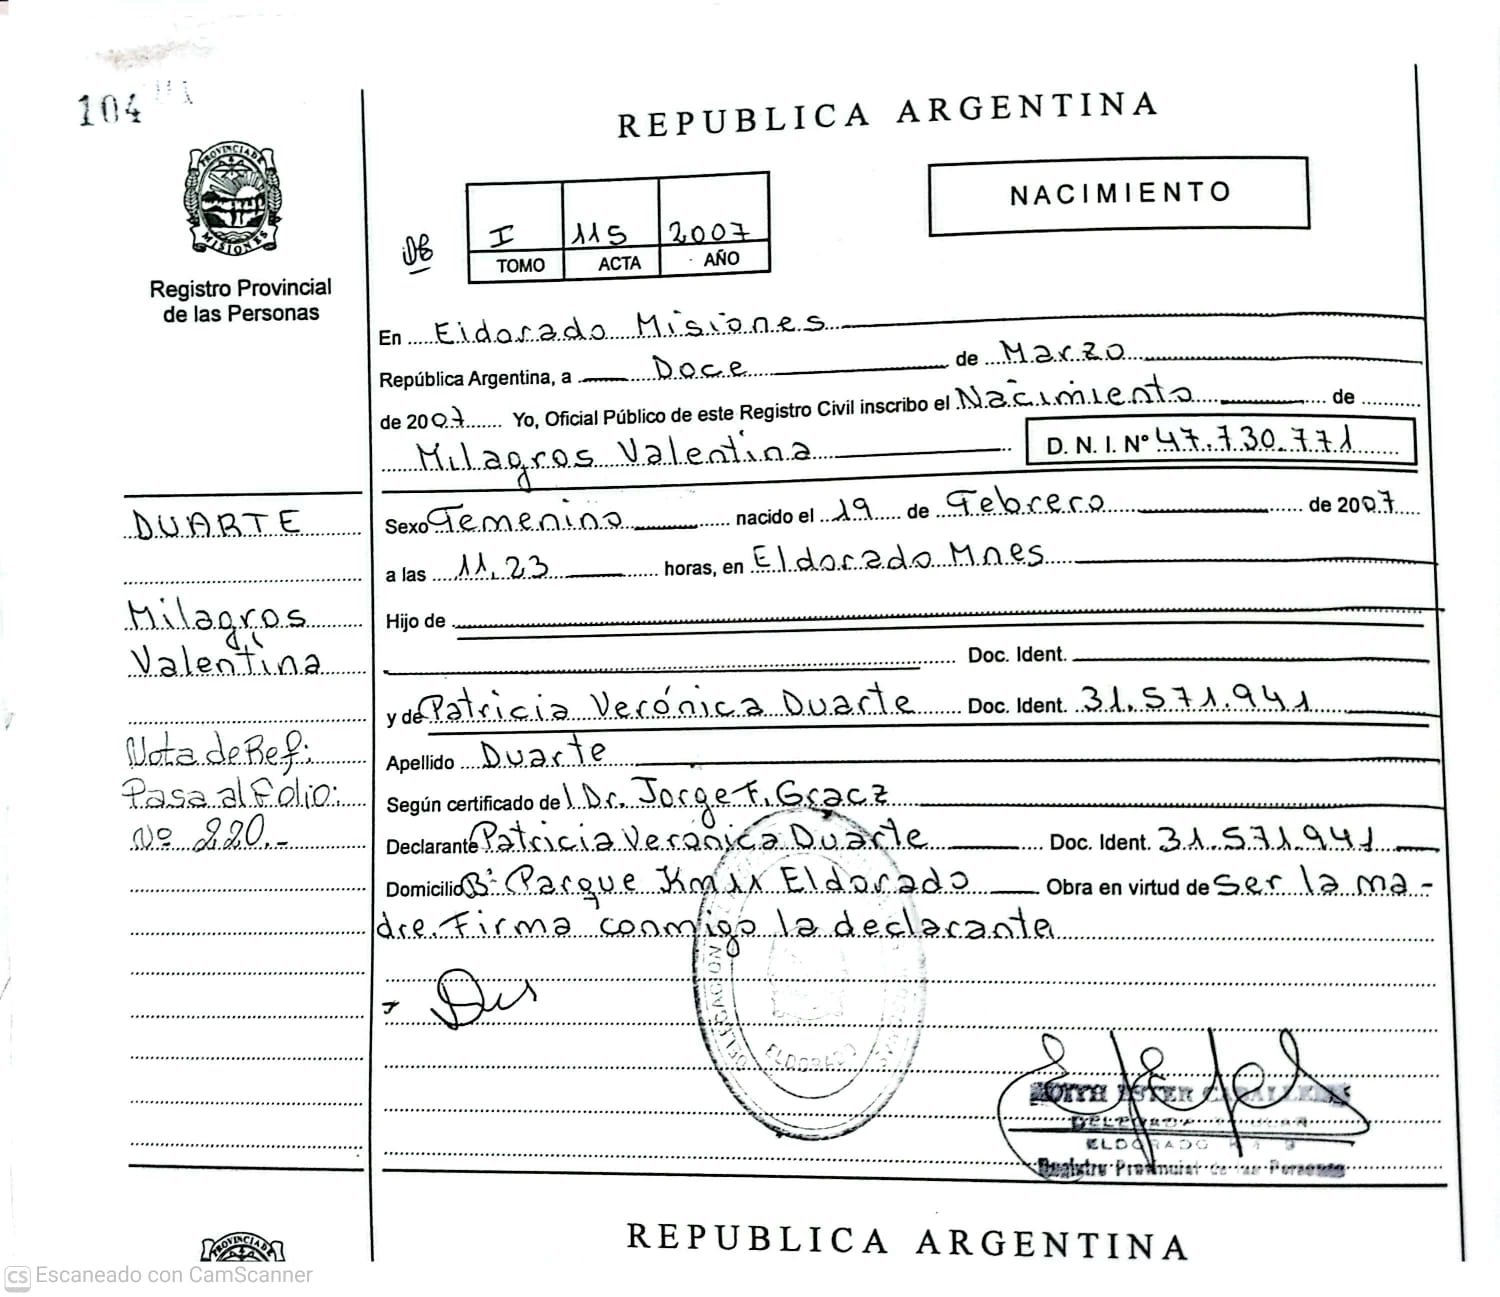 104
REPUBLICA ARGENTINA
NACIMIENTO
I 115 2007
TOMO ACTA AÑO
PROVINCIA DE
MISIONES
Registro Provincial
de las Personas
En Eldorado Misiones
República Argentina, a Doce de Marzo
de 2007 Yo, Oficial Público de este Registro Civil inscribo el Nacimiento de
Milagros Valentina D. N. I. Nº 47.730.771
DUARTE
Sexo Femenino nacido el 19 de Febrero de 2007
a las 11,23 horas, en Eldorado Mnes
Milagros
Hijo de
Valentina
Doc. Ident.
y de Patricia Verónica Duarte Doc. Ident. 31.571.941
Nota de Ref:
Apellido Duarte
Pasa al Folio:
Según certificado del Dr. Jorge F. Gracz
Nº 220.-
Declarante Patricia Veronica Duarte Doc. Ident. 31.571.941
Domicilio Bº Parque Km 11 Eldorado Obra en virtud de Ser la ma-
dre. Firma conmigo la declarante
DELEGACION
ELDORADO
ESTER
ELDORADO
Registro Provincial de las Personas
PROVINCIA DE
REPUBLICA ARGENTINA
CS Escaneado con CamScanner